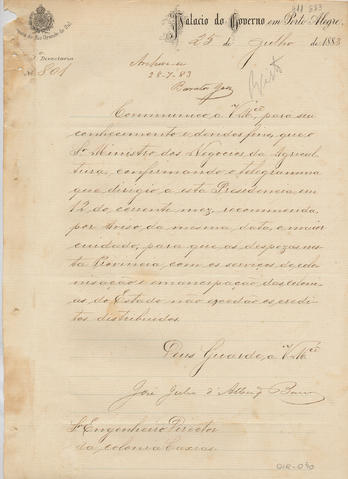 Palacio do Governo em Porto Alegre,
25 de Julho de 1883
Directoria
N. 801
Archive-se
28-7-83
Visto
Communico a V.ce, para seu
conhecimento e devidos fins, que o
Sr. Ministro dos Negocios da Agricul-
tura, confirmando o telegramma
que dirigio a esta Presidencia em
12 do corrente mez, recommenda
por Aviso da mesma data, o maior
cuidado, para que as despezas nes-
ta Provincia com os serviços de colo-
nisação e emancipação das coloni-
as do Estado não excedão os credi-
tos distribuidos.
Deus Guarde a V.ce
José Julio d'Albuq. Barros
Sr. Engenheiro Director
da colonia Caxias
OIR-090